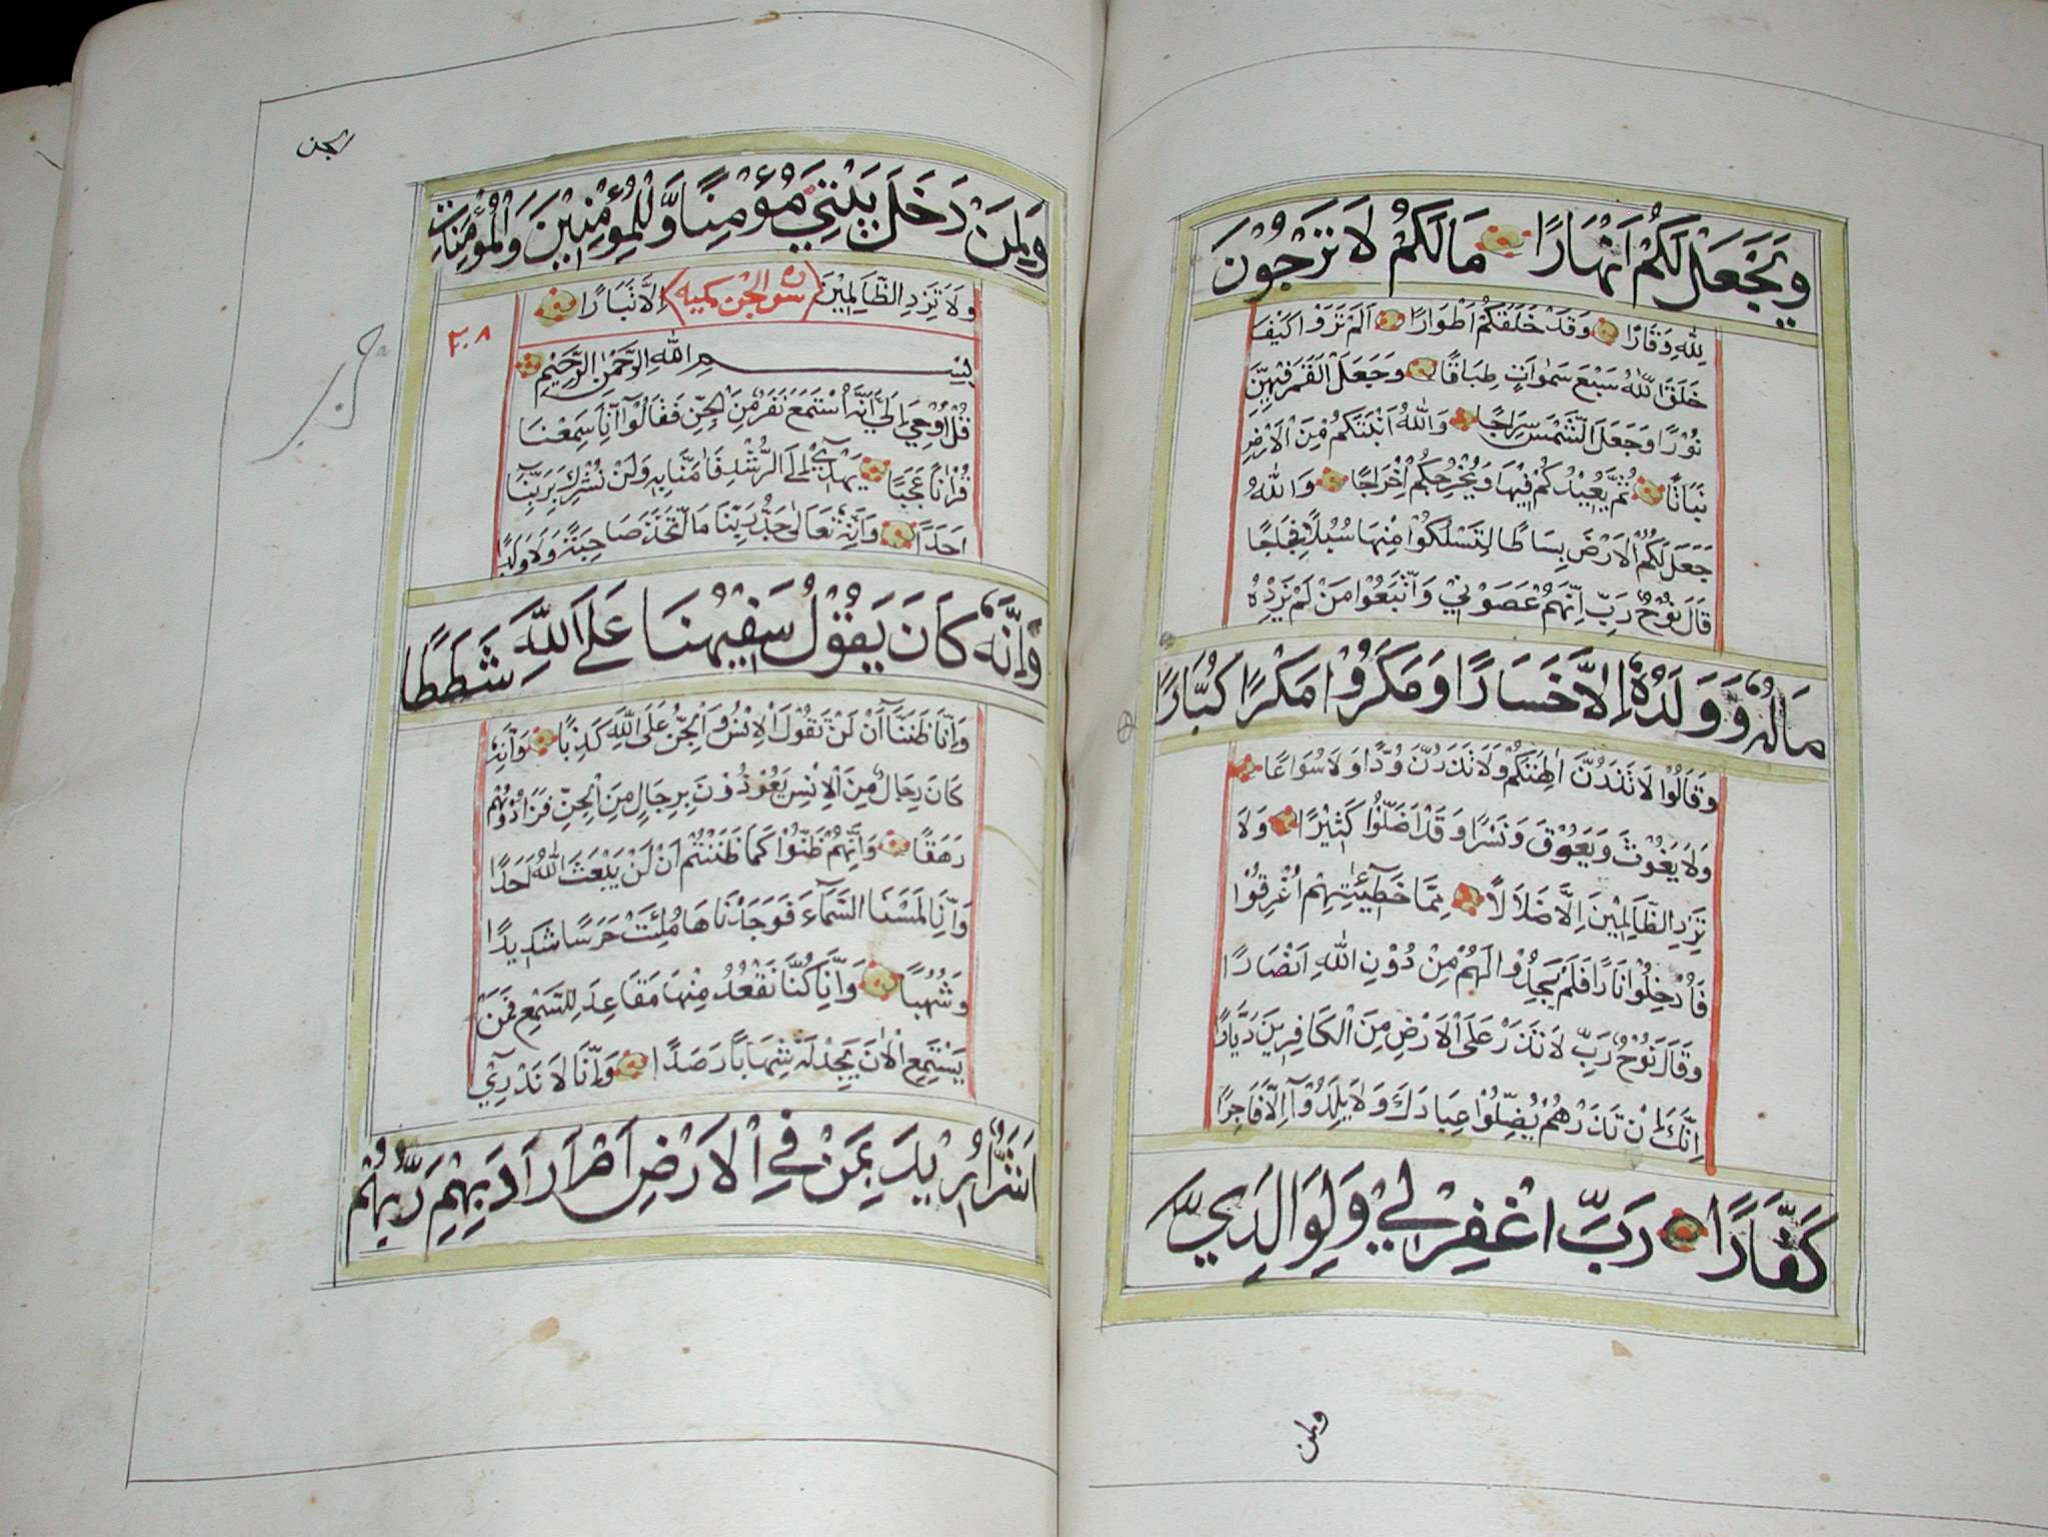 وَيَجْعَلْ لَكُمْ اَنْهَارًا مَا لَكُمْ لَا تَرْجُوْنَ
لِلّٰهِ وَقَارًا وَقَدْ خَلَقَكُمْ اَطْوَارًا اَلَمْ تَرَوْا كَيْفَ
خَلَقَ اللّٰهُ سَبْعَ سَمٰوَاتٍ طِبَاقًا وَجَعَلَ الْقَمَرَ فِيْهِنَّ
نُوْرًا وَجَعَلَ الشَّمْسَ سِرَاجًا وَاللّٰهُ اَنْبَتَكُمْ مِنَ الْاَرْضِ
نَبَاتًا ثُمَّ يُعِيْدُكُمْ فِيْهَا وَيُخْرِجُكُمْ اِخْرَاجًا وَاللّٰهُ
جَعَلَ لَكُمُ الْاَرْضَ بِسَاطًا لِتَسْلُكُوْا مِنْهَا سُبُلًا فِجَاجًا
قَالَ نُوْحٌ رَبِّ اِنَّهُمْ عَصَوْنِيْ وَاتَّبَعُوْا مَنْ لَمْ يَزِدْهُ
مَالُهٗ وَوَلَدُهٗ اِلَّا خَسَارًا وَمَكَرُوْا مَكْرًا كُبَّارًا
وَقَالُوْا لَا تَذَرُنَّ اٰلِهَتَكُمْ وَلَا تَذَرُنَّ وَدًّا وَلَا سُوَاعًا
وَلَا يَغُوْثَ وَيَعُوْقَ وَنَسْرًا وَقَدْ اَضَلُّوْا كَثِيْرًا وَلَا
تَزِدِ الظَّالِمِيْنَ اِلَّا ضَلَالًا مِمَّا خَطِيْٓئٰتِهِمْ اُغْرِقُوْا
فَاُدْخِلُوْا نَارًا فَلَمْ يَجِدُوْا لَهُمْ مِنْ دُوْنِ اللّٰهِ اَنْصَارًا
وَقَالَ نُوْحٌ رَبِّ لَا تَذَرْ عَلَى الْاَرْضِ مِنَ الْكَافِرِيْنَ دَيَّارًا
اِنَّكَ اِنْ تَذَرْهُمْ يُضِلُّوْا عِبَادَكَ وَلَا يَلِدُوْٓا اِلَّا فَاجِرًا
كَفَّارًا رَبِّ اغْفِرْ لِيْ وَلِوَالِدَيَّ
ولمن
وَلِمَنْ دَخَلَ بَيْتِيَ مُؤْمِنًا وَّلِلْمُؤْمِنِيْنَ وَالْمُؤْمِنَاتِ
وَلَا تَزِدِ الظَّالِمِيْنَ (سورة الجن مكيه) اِلَّا تَبَارًا
٢٠٨
بِسْمِ اللّٰهِ الرَّحْمٰنِ الرَّحِيْمِ
قُلْ اُوْحِيَ اِلَيَّ اَنَّهُ اسْتَمَعَ نَفَرٌ مِّنَ الْجِنِّ فَقَالُوْٓا اِنَّا سَمِعْنَا
قُرْاٰنًا عَجَبًا يَهْدِيْٓ اِلَى الرُّشْدِ فَاٰمَنَّا بِهٖ وَلَنْ نُشْرِكَ بِرَبِّنَا
اَحَدًا وَاَنَّهٗ تَعَالٰى جَدُّ رَبِّنَا مَا اتَّخَذَ صَاحِبَةً وَلَا وَلَدًا
وَاَنَّهٗ كَانَ يَقُوْلُ سَفِيْهُنَا عَلَى اللّٰهِ شَطَطًا
وَاَنَّا ظَنَنَّآ اَنْ لَنْ تَقُوْلَ الْاِنْسُ وَالْجِنُّ عَلَى اللّٰهِ كَذِبًا وَاَنَّهٗ
كَانَ رِجَالٌ مِنَ الْاِنْسِ يَعُوْذُوْنَ بِرِجَالٍ مِنَ الْجِنِّ فَزَادُوْهُمْ
رَهَقًا وَاَنَّهُمْ ظَنُّوْا كَمَا ظَنَنْتُمْ اَنْ لَنْ يَبْعَثَ اللّٰهُ اَحَدًا
وَاَنَّا لَمَسْنَا السَّمَآءَ فَوَجَدْنَاهَا مُلِئَتْ حَرَسًا شَدِيْدًا
وَشُهُبًا وَاَنَّا كُنَّا نَقْعُدُ مِنْهَا مَقَاعِدَ لِلسَّمْعِ فَمَنْ
يَسْتَمِعِ الْاٰنَ يَجِدْ لَهٗ شِهَابًا رَصَدًا وَاَنَّا لَا نَدْرِيْٓ
اَشَرٌّ اُرِيْدَ بِمَنْ فِي الْاَرْضِ اَمْ اَرَادَ بِهِمْ رَبُّهُمْ